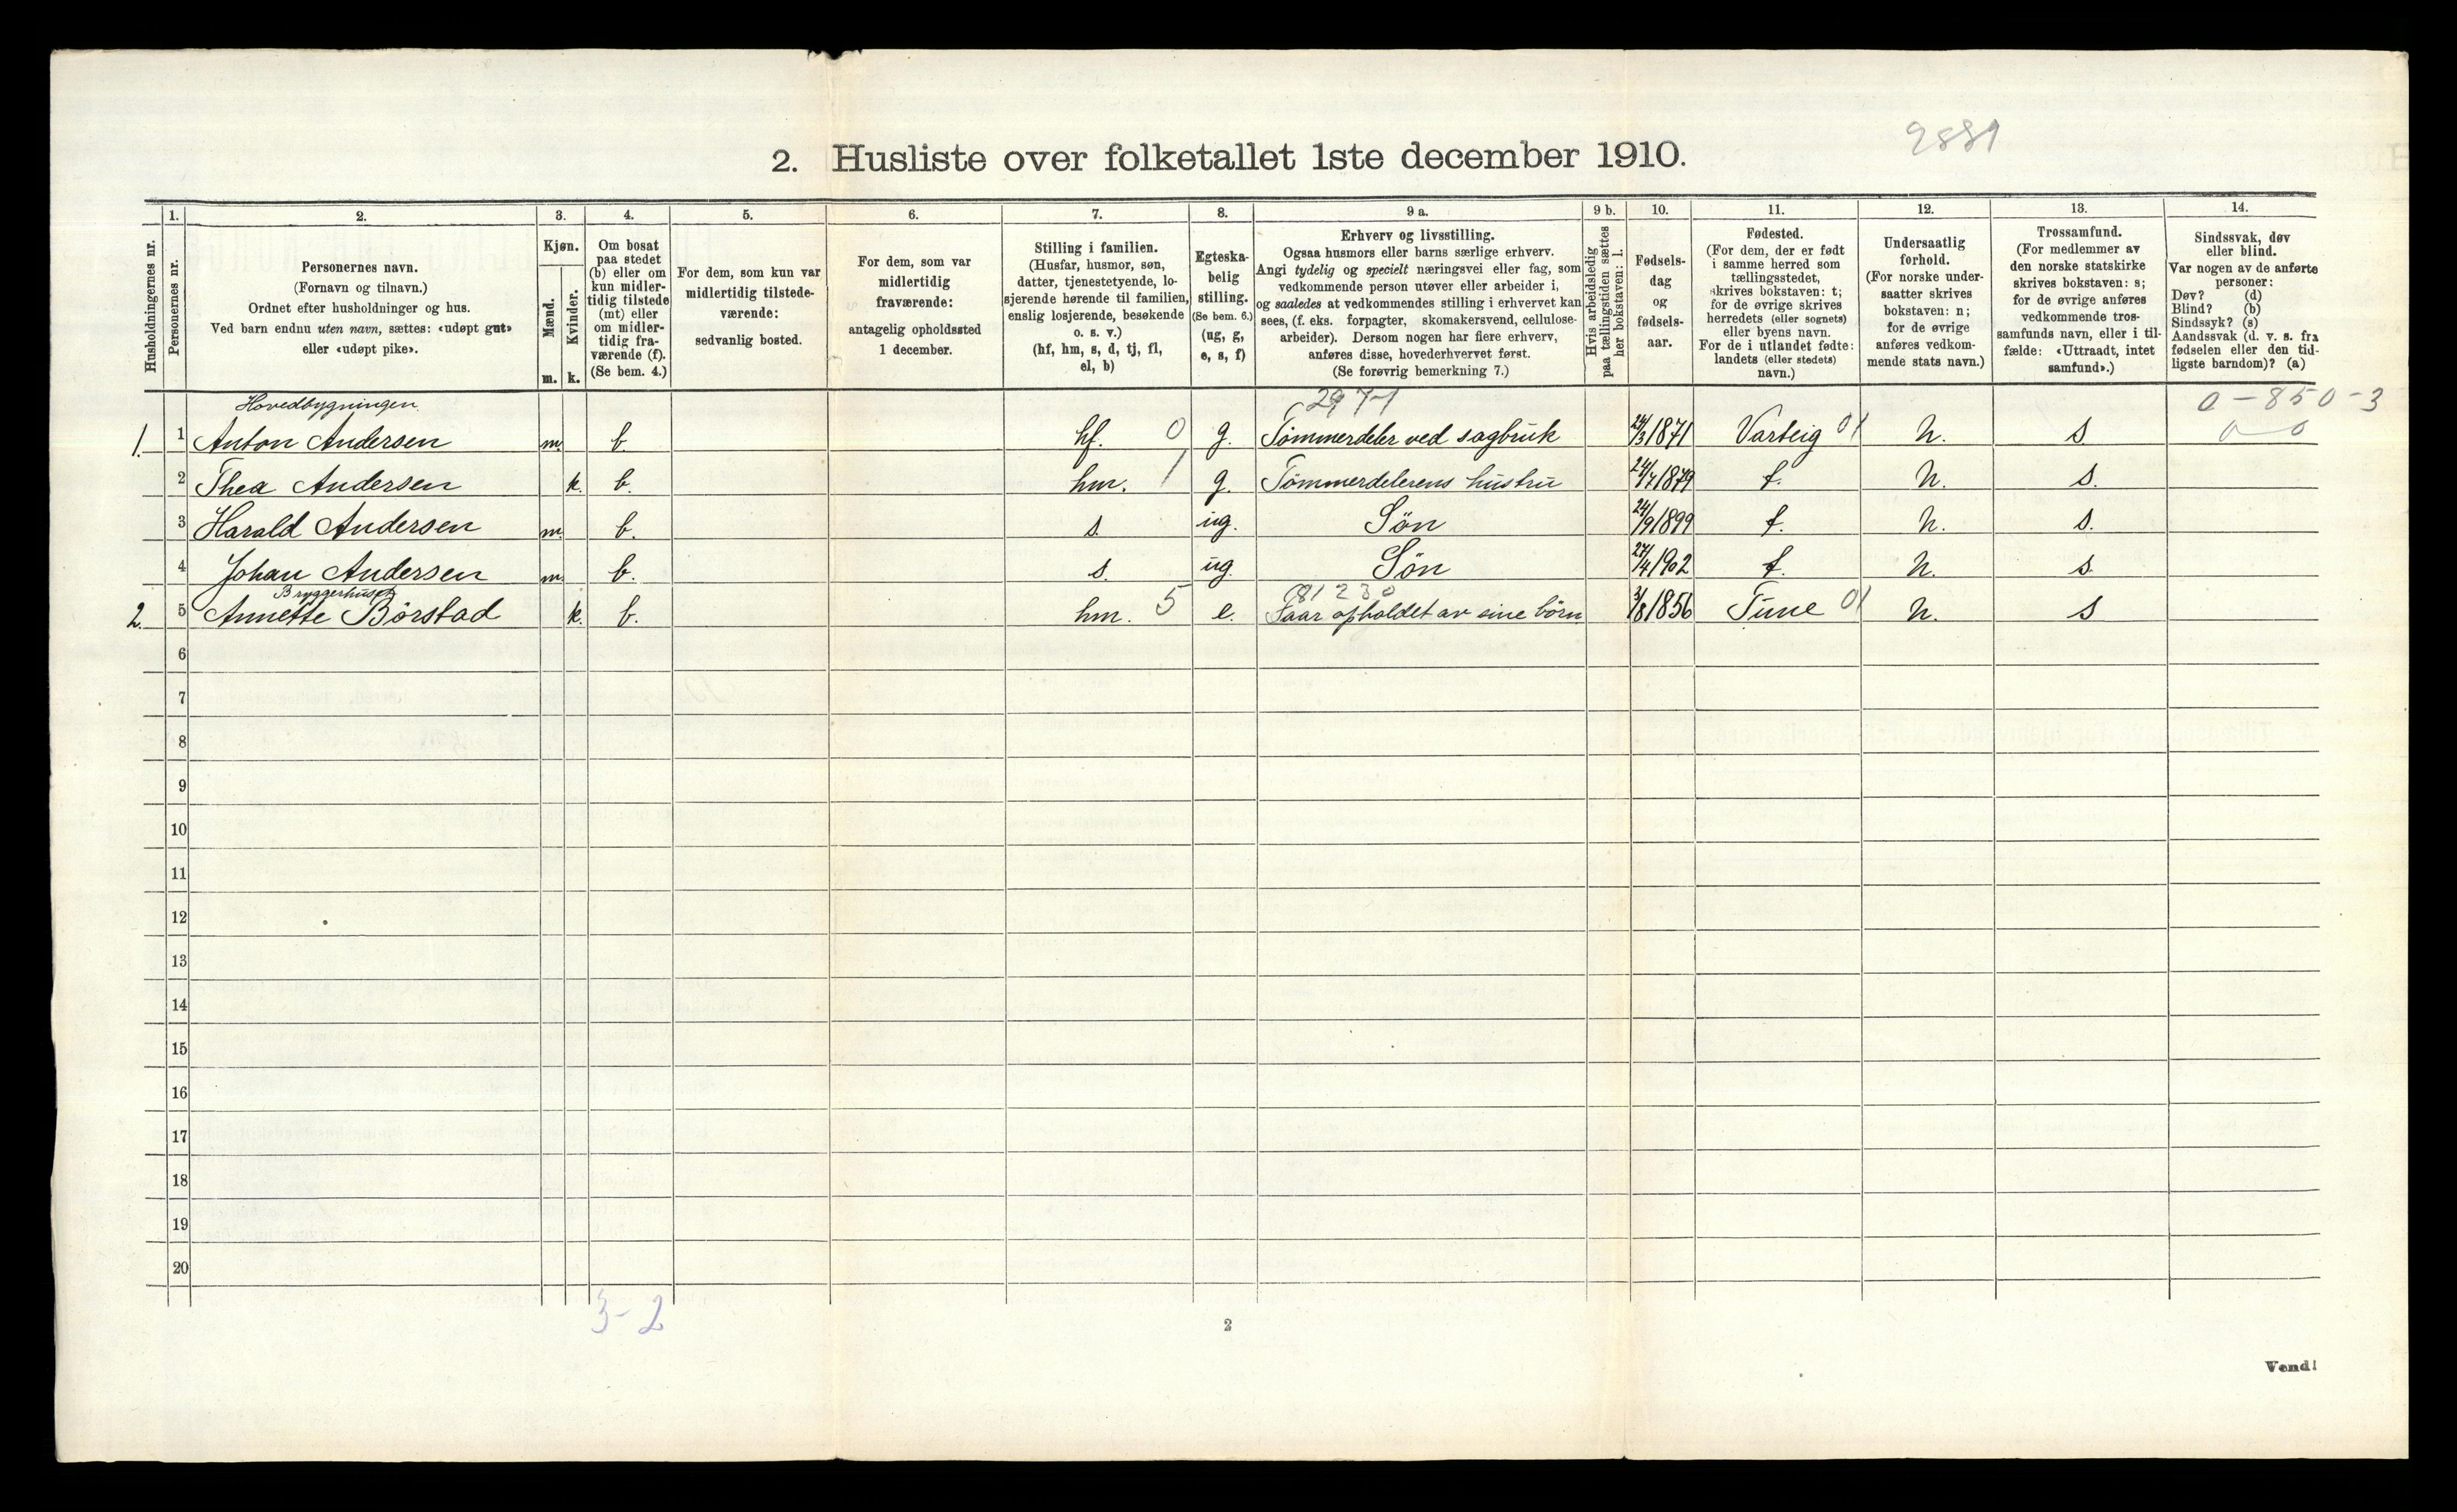 2881
2. Husliste over folketallet 1ste december 1910.
Husholdningernes nr.
1.
Personernes nr.
2.
Personernes navn.
(Fornavn og tilnavn.)
Ordnet efter husholdninger og hus.
Ved barn endnu uten navn, sættes: «udøpt gut»
eller «udøpt pike».
3.
Kjøn.
Mænd.
m.
Kvinder.
k.
4.
Om bosat
paa stedet
(b) eller om
kun midler-
tidig tilstede
(mt) eller
om midler-
tidig fra-
værende (f).
(Se bem. 4.)
5.
For dem, som kun var
midlertidig tilstede-
værende:
sedvanlig bosted.
6.
For dem, som var
midlertidig
fraværende:
antagelig opholdssted
1 december.
7.
Stilling i familien.
(Husfar, husmor, søn,
datter, tjenestetyende, lo-
sjerende hørende til familien,
enslig losjerende, besøkende
o. s. v.)
(hf, hm, s, d, tj, fl,
el, b)
8.
Egteska-
belig
stilling.
(Se bem. 6.)
(ug, g,
e, s, f)
9 a.
Erhverv og livsstilling.
Ogsaa husmors eller barns særlige erhverv.
Angi tydelig og specielt næringsvei eller fag, som
vedkommende person utøver eller arbeider i,
og saaledes at vedkommendes stilling i erhvervet kan
sees, (f. eks. forpagter, skomakersvend, cellulose-
arbeider). Dersom nogen har flere erhverv,
anføres disse, hovederhvervet først.
(Se forøvrig bemerkning 7.)
9 b.
Hvis arbeidsledig
paa tællingstiden sættes
her bokstaven: l.
10.
Fødsels-
dag
og
fødsels-
aar.
11.
Fødested.
(For dem, der er født
i samme herred som
tællingsstedet,
skrives bokstaven: t;
for de øvrige skrives
herredets (eller sognets)
eller byens navn.
For de i utlandet fødte:
landets (eller stedets)
navn.)
12.
Undersaatlig
forhold.
(For norske under-
saatter skrives
bokstaven: n;
for de øvrige
anføres vedkom-
mende stats navn.)
13.
Trossamfund.
(For medlemmer av
den norske statskirke
skrives bokstaven: s;
for de øvrige anføres
vedkommende tros-
samfunds navn, eller i til-
fælde: «Uttraadt, intet
samfund».)
14.
Sindssvak, døv
eller blind.
Var nogen av de anførte
personer:
Døv? (d)
Blind? (b)
Sindssyk? (s)
Aandssvak (d. v. s. fra
fødselen eller den tid-
ligste barndom)? (a)
Hovedbygningen 0-850-3
1. 1 Anton Andersen m. b. hf. 0 g. Tømmerdeler ved sagbruk 24/3 1871 Varteig 01 n. s 0-0
2 Thea Andersen k. b. hm. 1 g. Tømmerdelerens hustru 24/7 1879 t. n. s.
3 Harald Andersen m. b. s. ug. Søn 24/9 1899 t. n. s.
4 Johan Andersen m. b. s. ug. Søn 27/4 1902 t. n. s.
Bryggerhuset 81230
2. 5 Annette Børstad k. b. hm. 5 e. Faar opholdet av sine børn 3/8 1856 Tune 01 n. s
6
7
8
9
10
11
12
13
14
15
16
17
18
19
20
3-2
2
Vend!